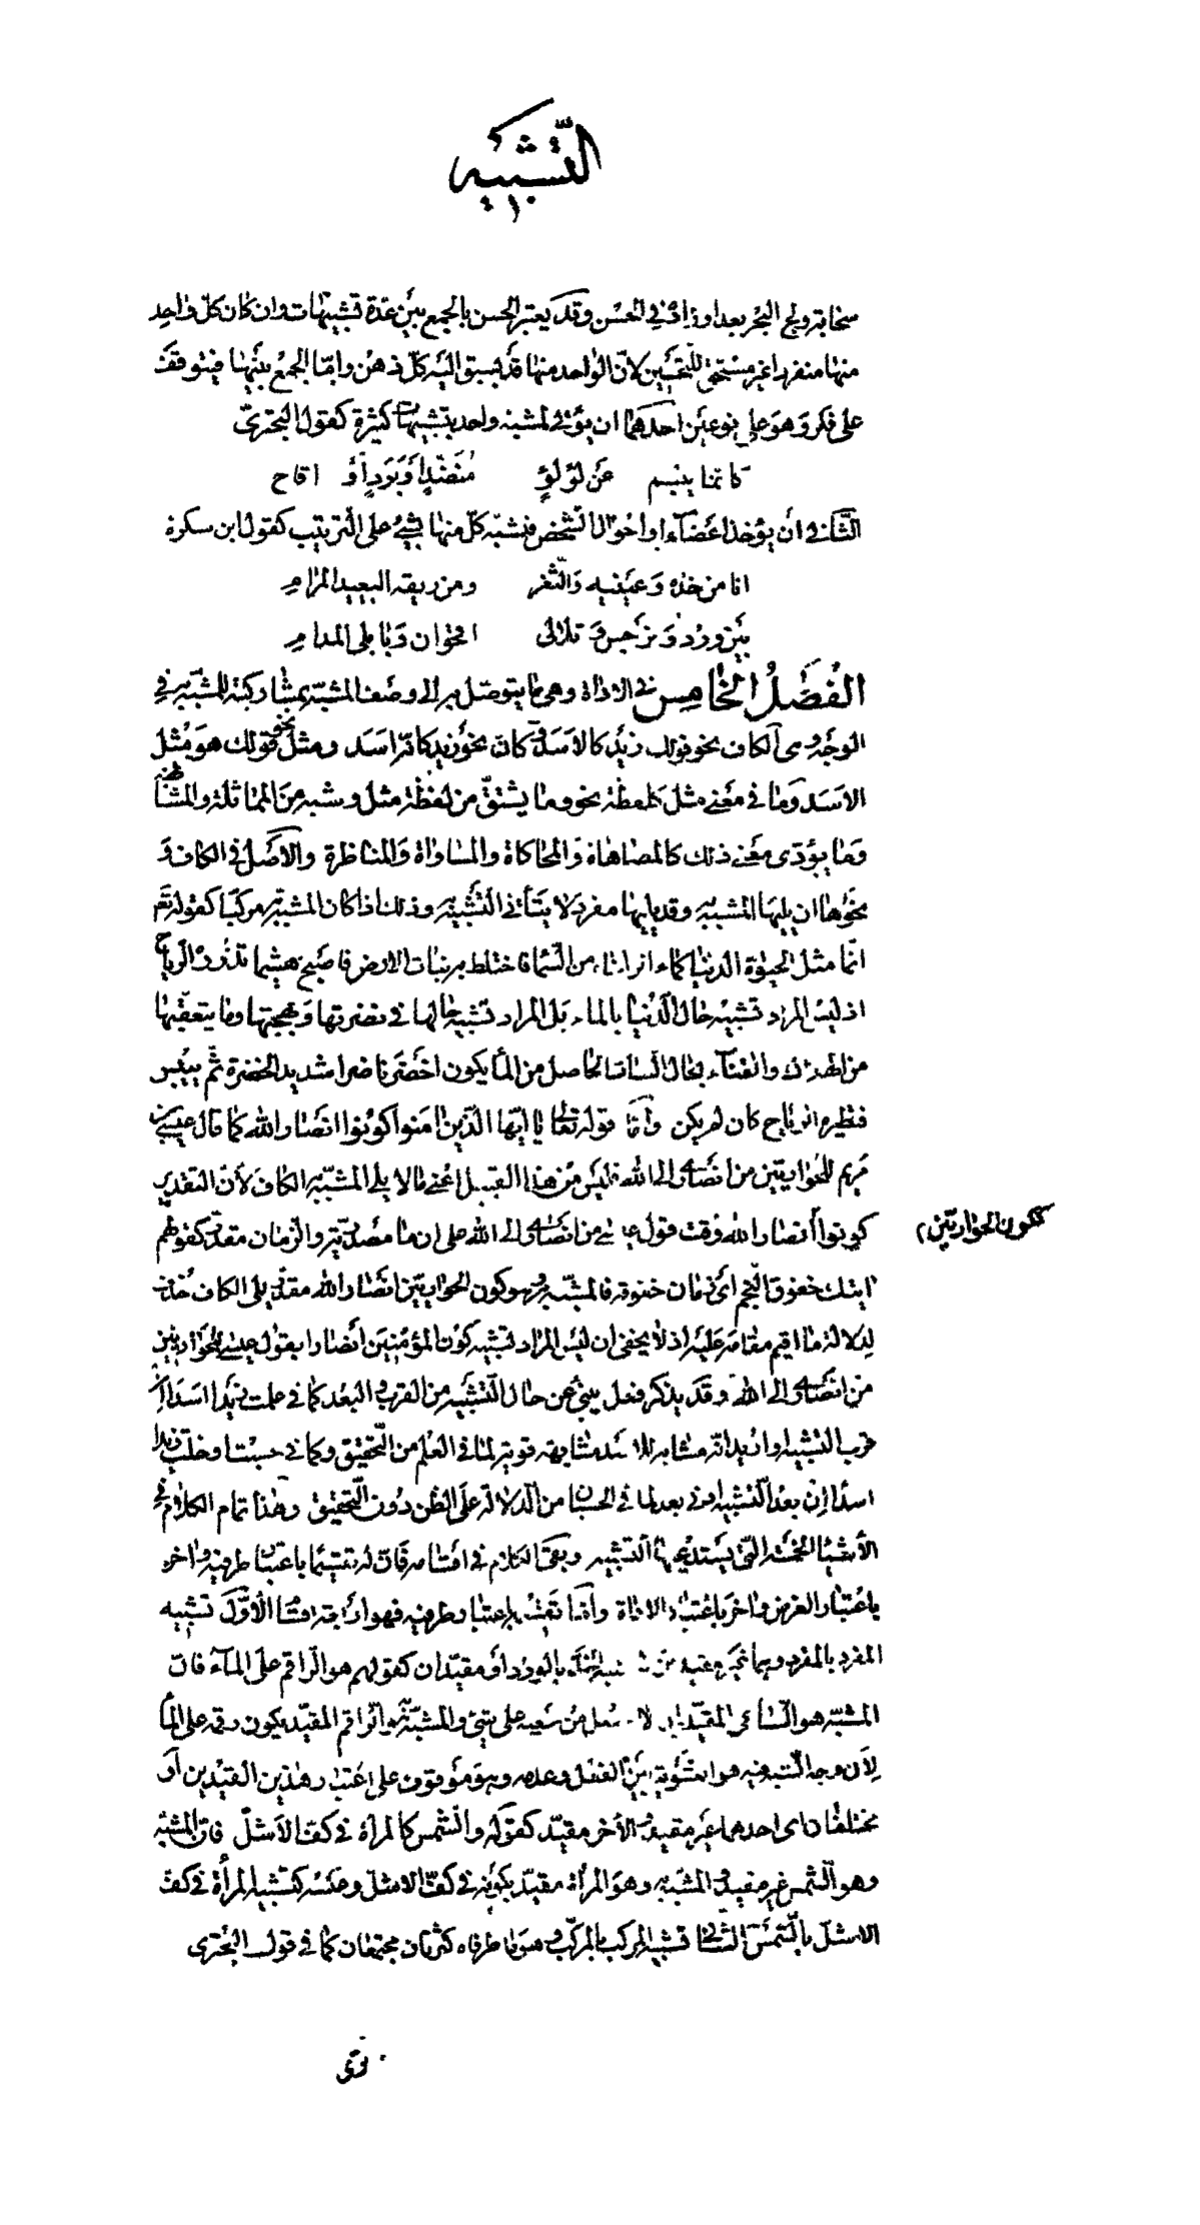 التشبيه
سخابة ولج البحر بعدا وزاد في الحسن وقد يعتبر الحسن بالجمع بين عدة تشبيهات وان كان كل واحد
منها منفردا غير مستحق للتحسين لان الواحد منها قد يسبق اليه كل ذهن واما الجمع بينها فيتوقف
على فكر وهو على نوعين احدهما ان يؤتى لمشبه واحد بتشبيهات كثيرة كقول البحتري
كانما يبسم عن لؤلؤ منضد او برد او اقاح
الثاني ان يؤخذ اعضاء او احوال الشخص فيشبه كل منها بشئ على الترتيب كقول ابن سكرة
انا من خده وعينيه والثغر ومن ريقه البعيد المرام
بين ورد ونرجس وتلالى اقحوان وبابلى المدام
الفصل الخامس في الاداة وهى ما يتوصل به الى وصف المشبه بمشاركته للمشبه به في
الوجه وهى الكاف نحو قولك زيد كالاسد وكان نحو زيد كانه اسد ومثل نحو قولك هو مثل
الاسد وما في معنى مثل كلفظة نحو وما يشتق من لفظة مثل وشبه من المماثلة والمشابهة
وما يؤدى معنى ذلك كالمضاهاة والمحاكاة والمساواة والمناظرة والاصل في الكاف و
نحوها ان يليها المشبه به وقد يليها مفرد لا يتأتى التشبيه به وذلك اذا كان المشبه به مركبا كقوله تع
انما مثل الحيوة الدنيا كماء انزلناه من السماء فاختلط به نبات الارض فاصبح هشيما تذروه الرياح
اذ ليس المراد تشبيه حال الدنيا بالماء بل المراد تشبيه حالها في نضرتها وبهجتها وما يتعقبها
من الهلاك والفناء بحال النبات الحاصل من الماء يكون اخضر ناضرا شديد الخضرة ثم ييبس
فتطيره الرياح كان لم يكن واما قوله تعالى يا ايها الذين امنوا كونوا انصار الله كما قال عيسى بن
مريم للحواريين من انصارى الى الله فليس من هذا القبيل اعنى ما لا يلى المشبه به الكاف لان التقدير
ككون الحواريين
كونوا أنصار الله وقت قول عيسى من انصارى الى الله على ان ما مصدرية والزمان مقدر كقولهم
اتيتك خفوق النجم اى زمان خفوقه فالمشبه به وهو كون الحواريين انصار الله مقدر يلى الكاف حذف
لدلالة ما اقيم مقامه عليه اذ لا يخفى ان ليس المراد تشبيه كون المؤمنين انصارا بقول عيسى للحواريين
من انصارى الى الله وقد يذكر فعل ينبئ عن حال التشبيه من القرب والبعد كما في علمت زيدا اسدا ان
قرب التشبيه واريد انه مشابه للاسد مشابهة قوية لما في العلم من التحقيق وكما في حسبت او خلت زيدا
اسدا ان بعد التشبيه ادنى بعد لما في الحسبان من الدلالة على الظن دون التحقيق وهذا تمام الكلام في
الأشياء الخمسة التي يستدعيها التشبيه وبقى الكلام في اقسامه فان له تقسيما باعتبار طرفيه واخر
باعتبار الغرض واخر باعتبار الاداة واما تقسيمه باعتبار طرفيه فهو اربعة اقسام الاول تشبيه
المفرد بالمفرد وهما غير مقيدين كتشبيه الخد بالورد او مقيدان كقولهم هو الراقم على الماء فان
المشبه هو الساعي المقيد بان لا يحصل من سعيه على شئ والمشبه به هو الراقم المقيد بكون رقمه على الماء
لان وجه الشبه فيه هو التسوية بين الفعل وعدمه وهو موقوف على اعتبار هذين القيدين أو
مختلفان اى احدهما غير مقيد والأخر مقيد كقوله والشمس كالمرأة في كف الاشل فان المشبه
وهو الشمس غير مقيد والمشبه به وهو المرأة مقيد بكونه في كف الاشل وعكسه كتشبيه المرأة في كف
الاشل بالشمس الثاني تشبيه المركب بالمركب وهو ما طرفاه كثرتان مجتمعتان كما في قول البحترى
ترى